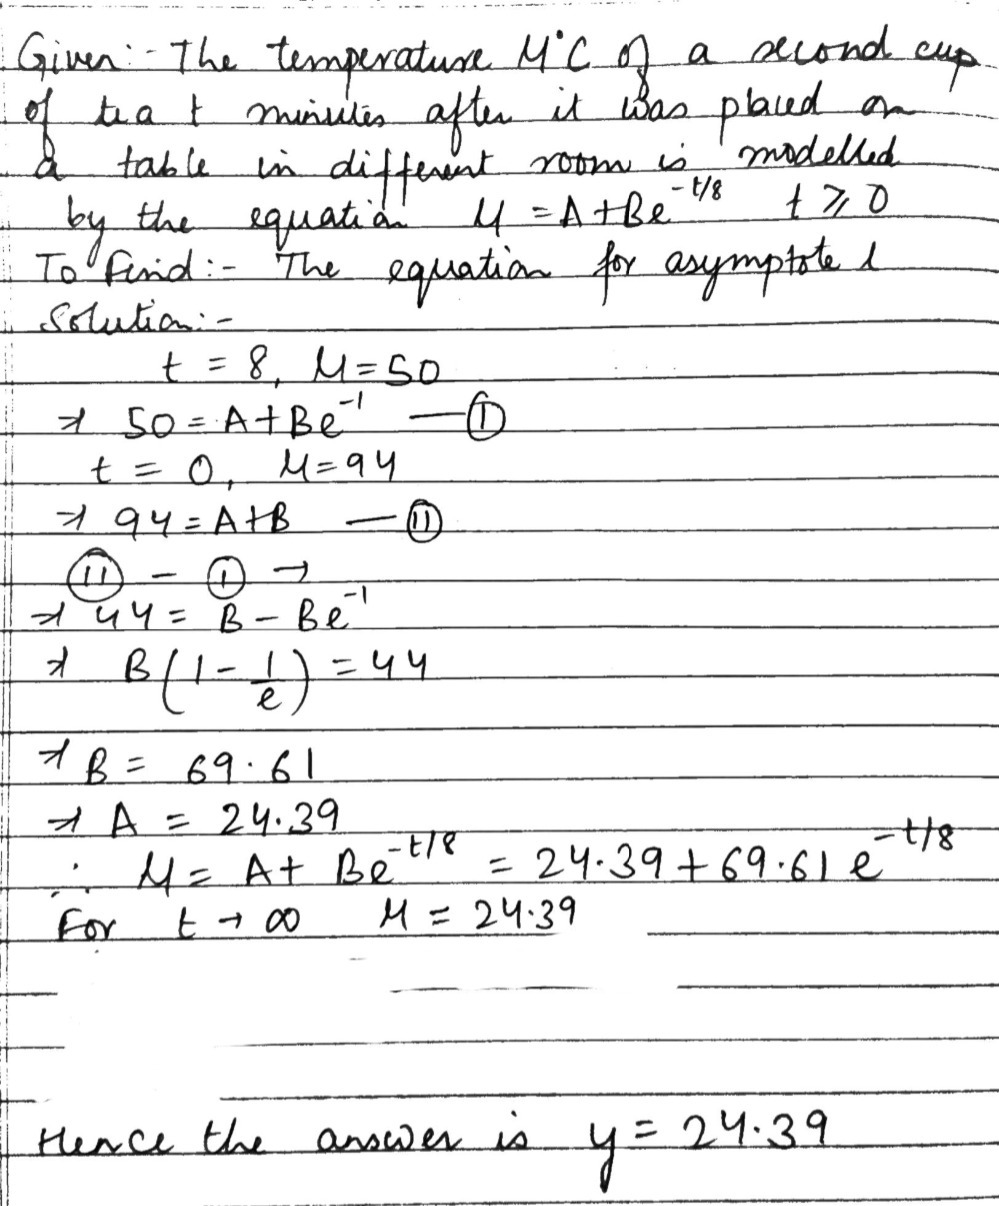 Given:- The temperature μ°C of a second cup
of tea t minutes after it was placed on
a table in different room is modelled
by the equation μ = A + Be^{-t/8} t ⩾ 0
To find:- The equation for asymptote l
Solution:-
t = 8, μ = 50
⇒ 50 = A + Be^{-1} — (I)
t = 0, μ = 94
⇒ 94 = A + B — (II)
(II) - (I) →
⇒ 44 = B - Be^{-1}
⇒ B(1 - 1/e) = 44
⇒ B = 69.61
⇒ A = 24.39
∴ μ = A + Be^{-t/8} = 24.39 + 69.61 e^{-t/8}
For t → ∞ μ = 24.39
Hence the answer is y = 24.39